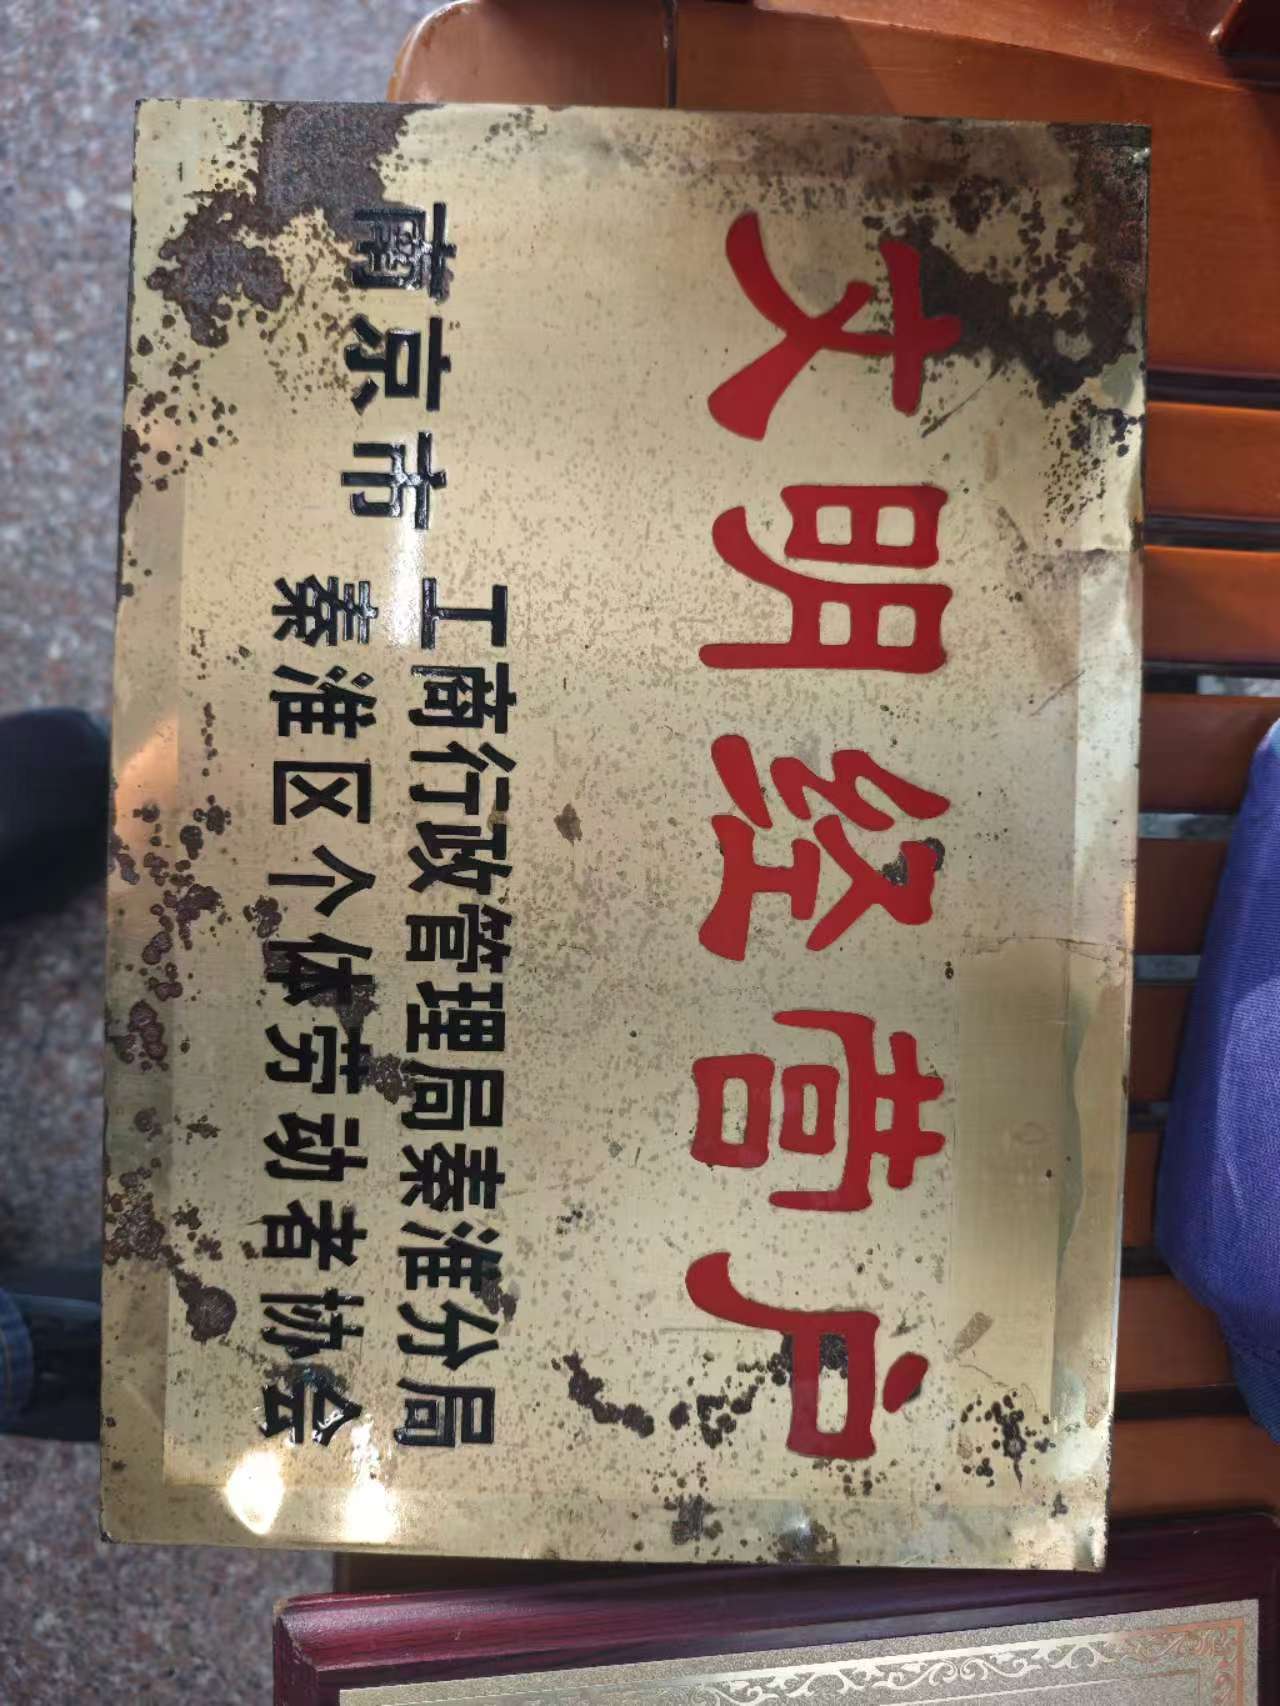 文明经营户
南京市
工商行政管理局秦淮分局
秦淮区个体劳动者协会